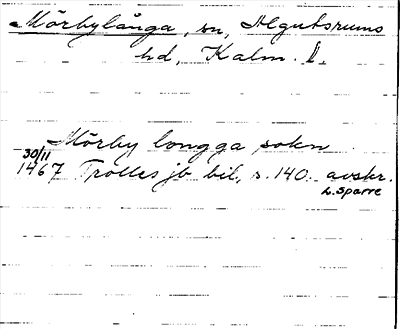 Mörbylånga, sn, Algutsrums
hd, Kalm. l.
Mörby longga sokn
30/11
1467 Trolles jb bil., s. 140. avskr.
L. Sparre